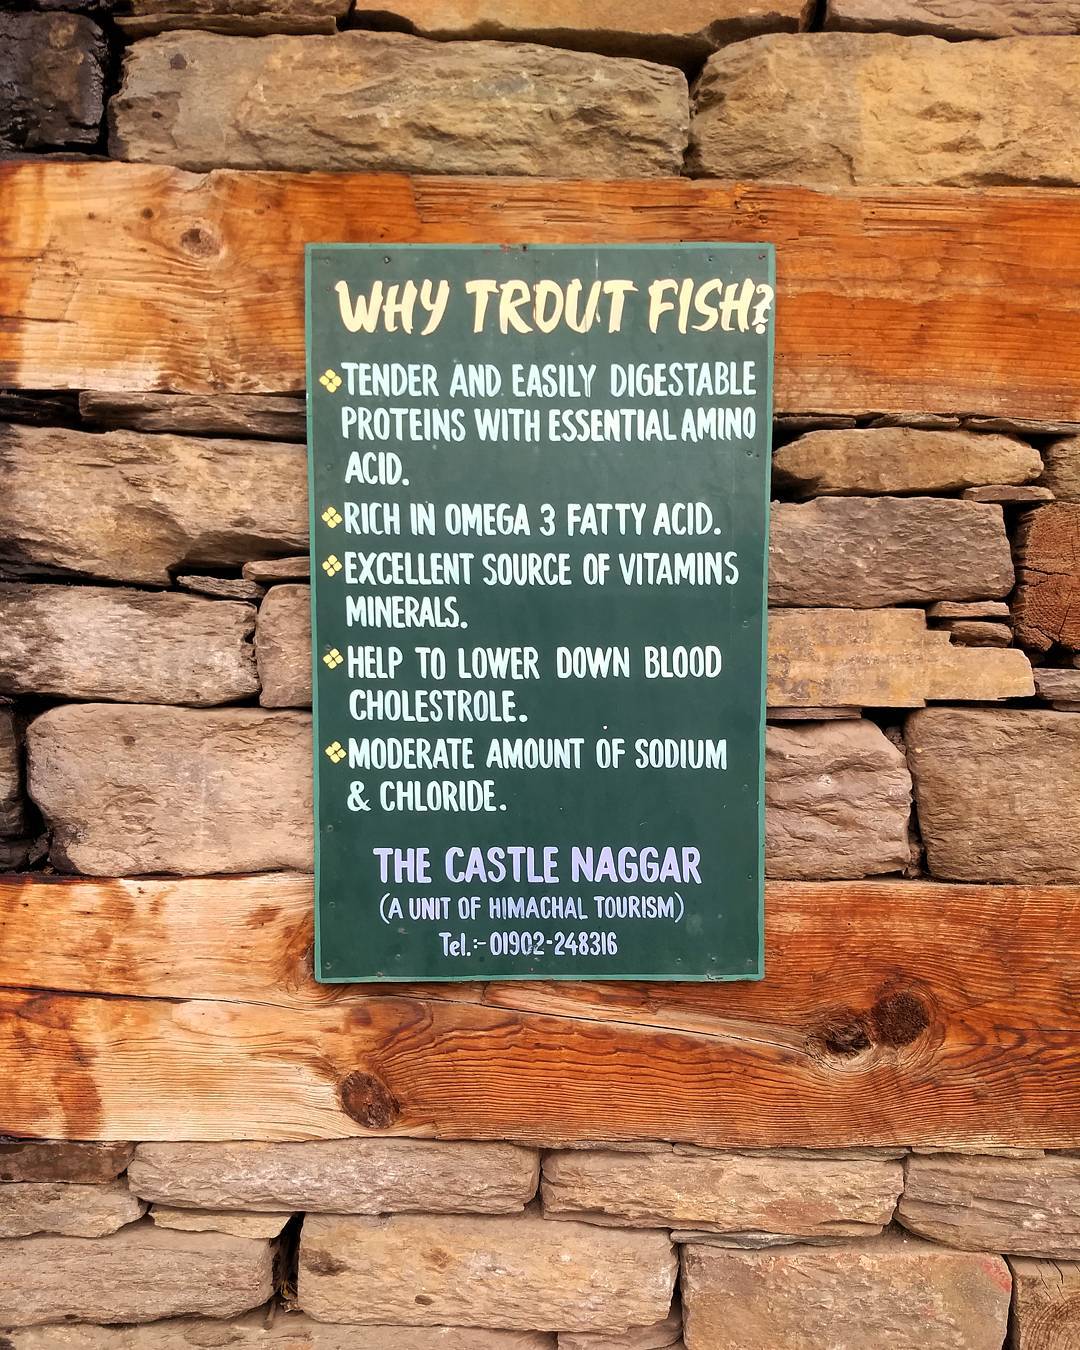 WHY TROUT FISH?
TENDER AND EASILY DIGESTABLE
PROTEINS WITH ESSENTIAL AMINO
ACID.
RICH IN OMEGA 3 FATTY ACID.
EXCELLENT SOURCE OF VITAMINS
MINERALS.
HELP TO LOWER DOWN BLOOD
CHOLESTROLE.
MODERATE AMOUNT OF SODIUM
& CHLORIDE.
THE CASTLE NAGGAR
(A UNIT OF HIMACHAL TOURISM)
Tel.:-01902-248316